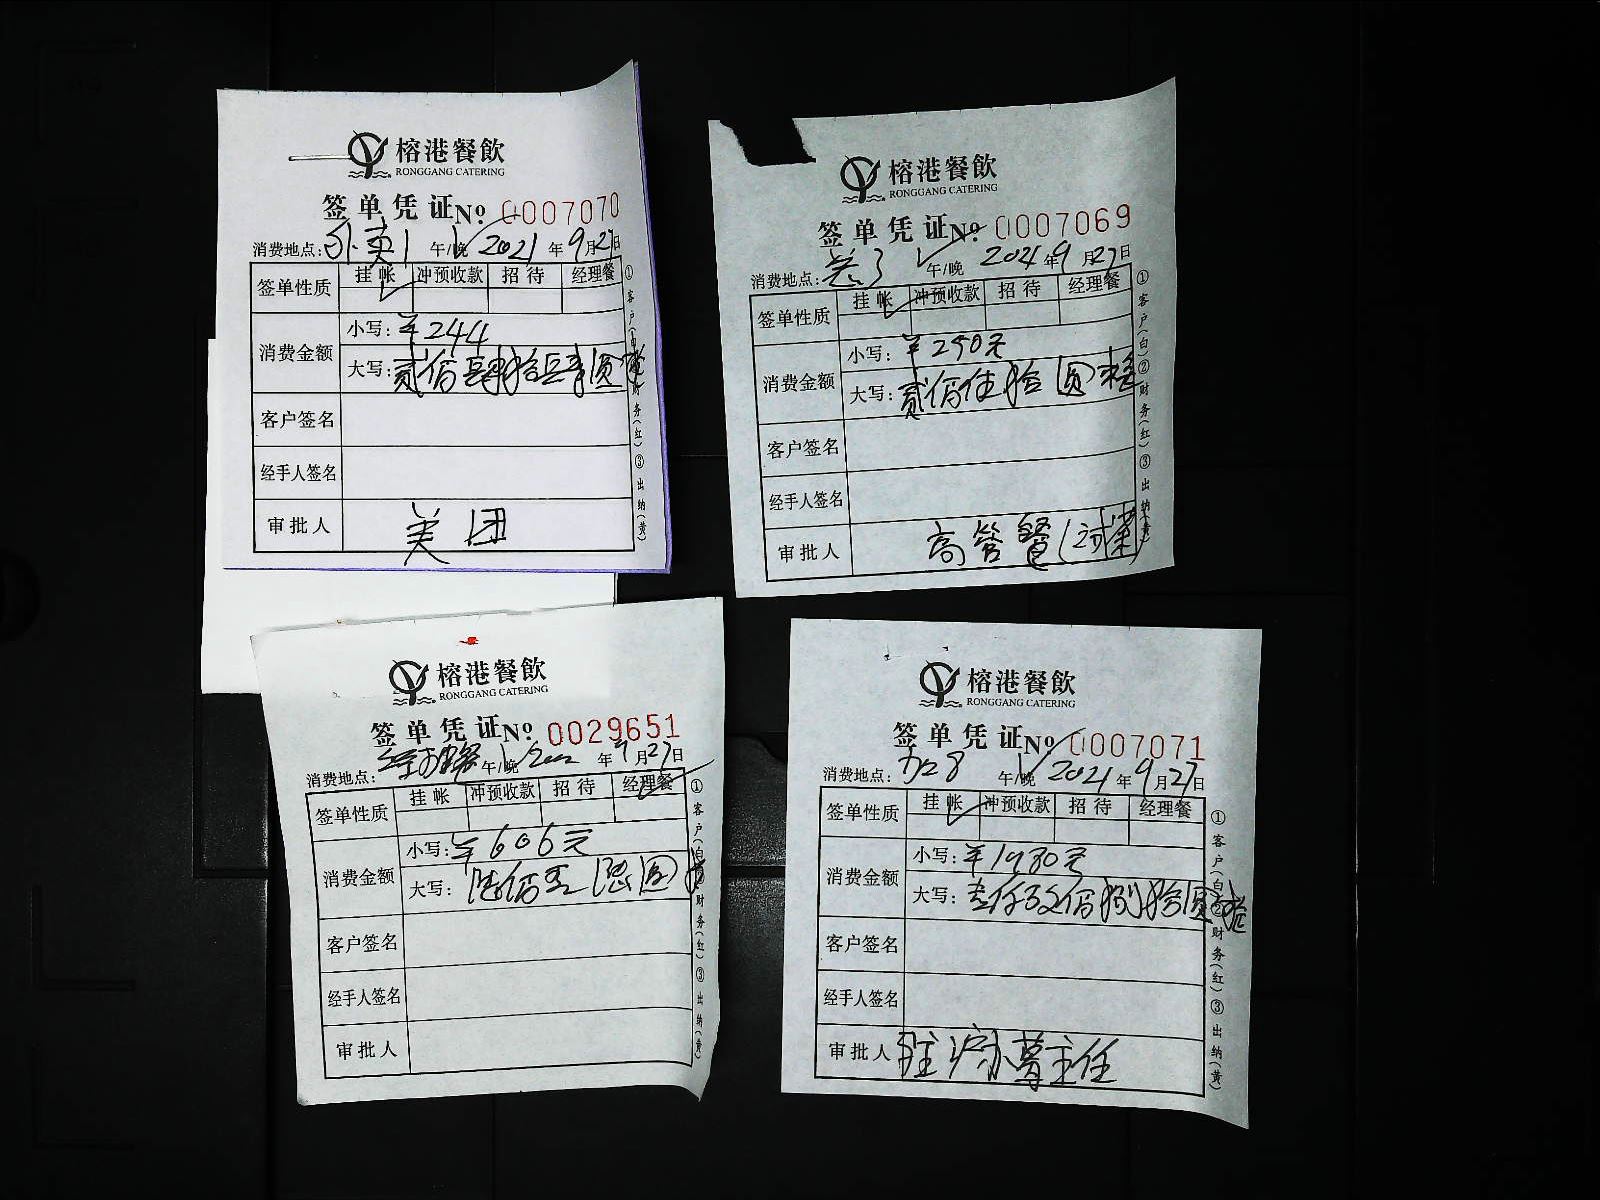 榕港餐飲
RONGGANG CATERING
签单凭证 № 0007070
消费地点: 外卖1 午/晚 2021年9月27日
签单性质 挂帐 冲预收款 招待 经理餐
消费金额 小写: ¥244
大写: 贰佰肆拾肆圆整
客户签名
经手人签名
审批人 美团
①客户(白)②财务(红)③出纳(黄)
榕港餐飲
RONGGANG CATERING
签单凭证 № 0007069
消费地点: 午/晚 2021年9月27日
签单性质 挂帐 冲预收款 招待 经理餐
消费金额 小写: ¥250元
大写: 贰佰伍拾圆整
客户签名
经手人签名
审批人 高管餐(试菜)
①客户(白)②财务(红)③出纳(黄)
榕港餐飲
RONGGANG CATERING
签单凭证 № 0029651
消费地点: 午/晚 年9月27日
签单性质 挂帐 冲预收款 招待 经理餐
消费金额 小写: ¥606元
大写: 陆佰零陆圆整
客户签名
经手人签名
审批人
①客户(白)②财务(红)③出纳(黄)
榕港餐飲
RONGGANG CATERING
签单凭证 № 0007071
消费地点: 加8 午/晚 2021年9月27日
签单性质 挂帐 冲预收款 招待 经理餐
消费金额 小写: ¥1980元
大写: 壹仟玖佰捌拾圆整
客户签名
经手人签名
审批人 驻沪办 主任
①客户(白)②财务(红)③出纳(黄)